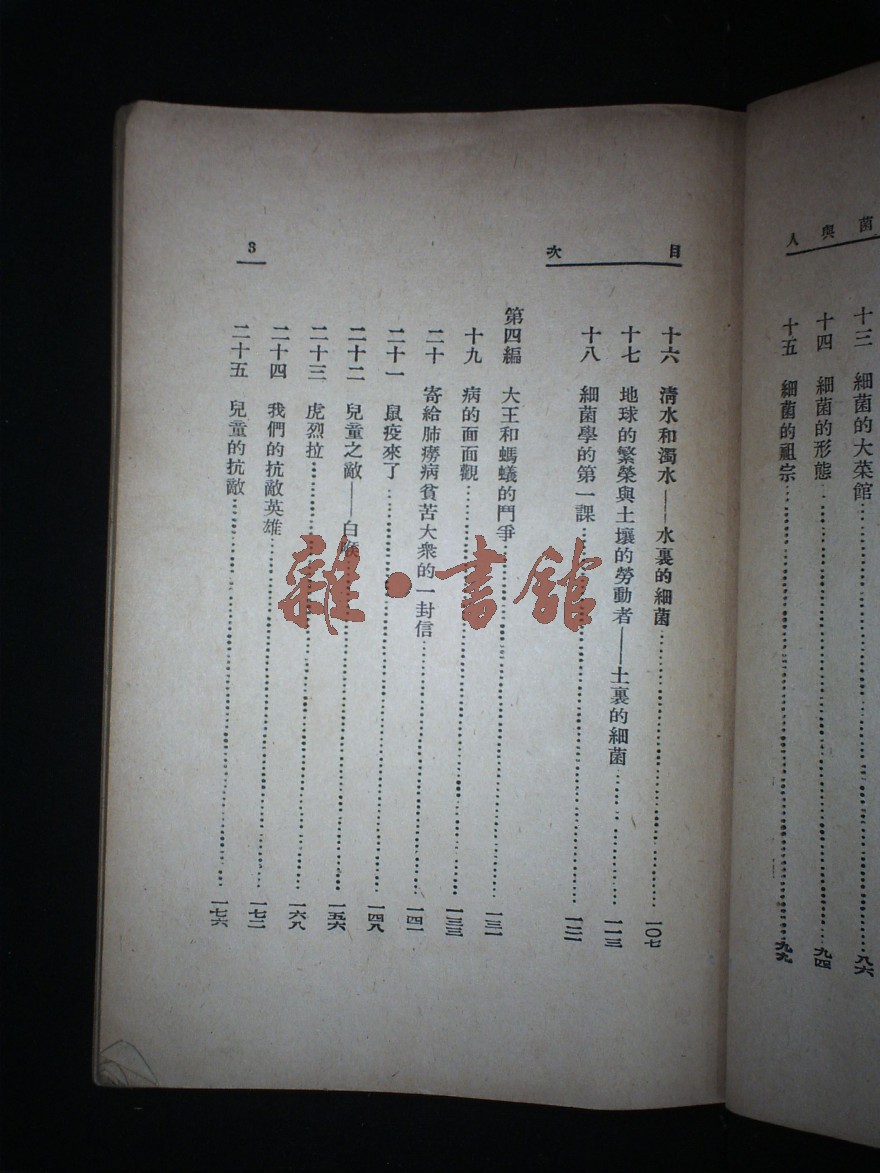 菌與人
十三　細菌的大菜館……八六
十四　細菌的形態……九四
十五　細菌的祖宗……九九
目次
3
十六　清水和濁水——水裏的細菌……一〇七
十七　地球的繁榮與土壤的勞動者——土裏的細菌……一一三
十八　細菌學的第一課……一二一
第四編　大王和螞蟻的鬥爭……一三一
十九　病的面面觀……一三三
二十　寄給肺癆病貧苦大衆的一封信……一四一
二十一　鼠疫來了……一四八
二十二　兒童之敵——白喉……一五六
二十三　虎烈拉……一六八
二十四　我們的抗敵英雄……一七二
二十五　兒童的抗敵……一七六
雜·書館